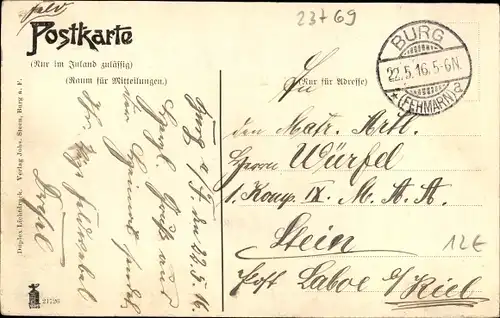 Feld
Postkarte
(Nur im Inland zulässig)
(Raum für Mitteilungen.)
(Nur für Adresse)
23769
BURG
22.5.16.5-6N.
* (FEHMARN) a
Burg a/F. den 22.5.16.
Gruß aus
der Heimat sendet
Ihr
An
den Matr. Artl.
Herrn Würfel
1. Komp. IV. M. A. A.
Stein
Post Laboe b/Kiel
12€
Duplex Lichtdruck. Verlag Johs. Steen, Burg a. F.
21726